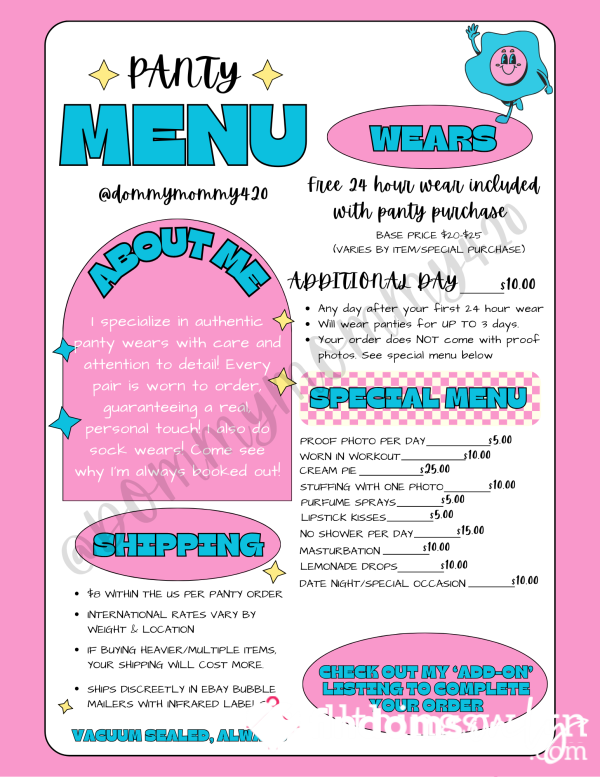 PANTY
MENU
@dommymommy420
ABOUT ME
I specialize in authentic
panty wears with care and
attention to detail! Every
pair is worn to order,
guaranteeing a real,
personal touch! I also do
sock wears! Come see
why I'm always booked out!
SHIPPING
$8 WITHIN THE US PER PANTY ORDER
INTERNATIONAL RATES VARY BY
WEIGHT & LOCATION
IF BUYING HEAVIER/MULTIPLE ITEMS,
YOUR SHIPPING WILL COST MORE.
SHIPS DISCREETLY IN EBAY BUBBLE
MAILERS WITH INFRARED LABELS
VACUUM SEALED,
WEARS
Free 24 hour wear included
with panty purchase
BASE PRICE $20-$25
(VARIES BY ITEM/SPECIAL PURCHASE)
ADDITIONAL DAY______$10.00
Any day after your first 24 hour wear
Will wear panties for UP TO 3 days.
Your order does NOT come with proof
photos. See special menu below
SPECIAL MENU
PROOF PHOTO PER DAY________$5.00
WORN IN WORKOUT________$10.00
CREAM PIE ________$25.00
STUFFING WITH ONE PHOTO______$10.00
PURFUME SPRAYS______$5.00
LIPSTICK KISSES______$5.00
NO SHOWER PER DAY______$15.00
MASTURBATION ______$10.00
LEMONADE DROPS______$10.00
DATE NIGHT/SPECIAL OCCASION ______$10.00
CHECK OUT MY 'ADD-ON'
LISTING TO COMPLETE
YOUR ORDER
@dommymommy420
.com